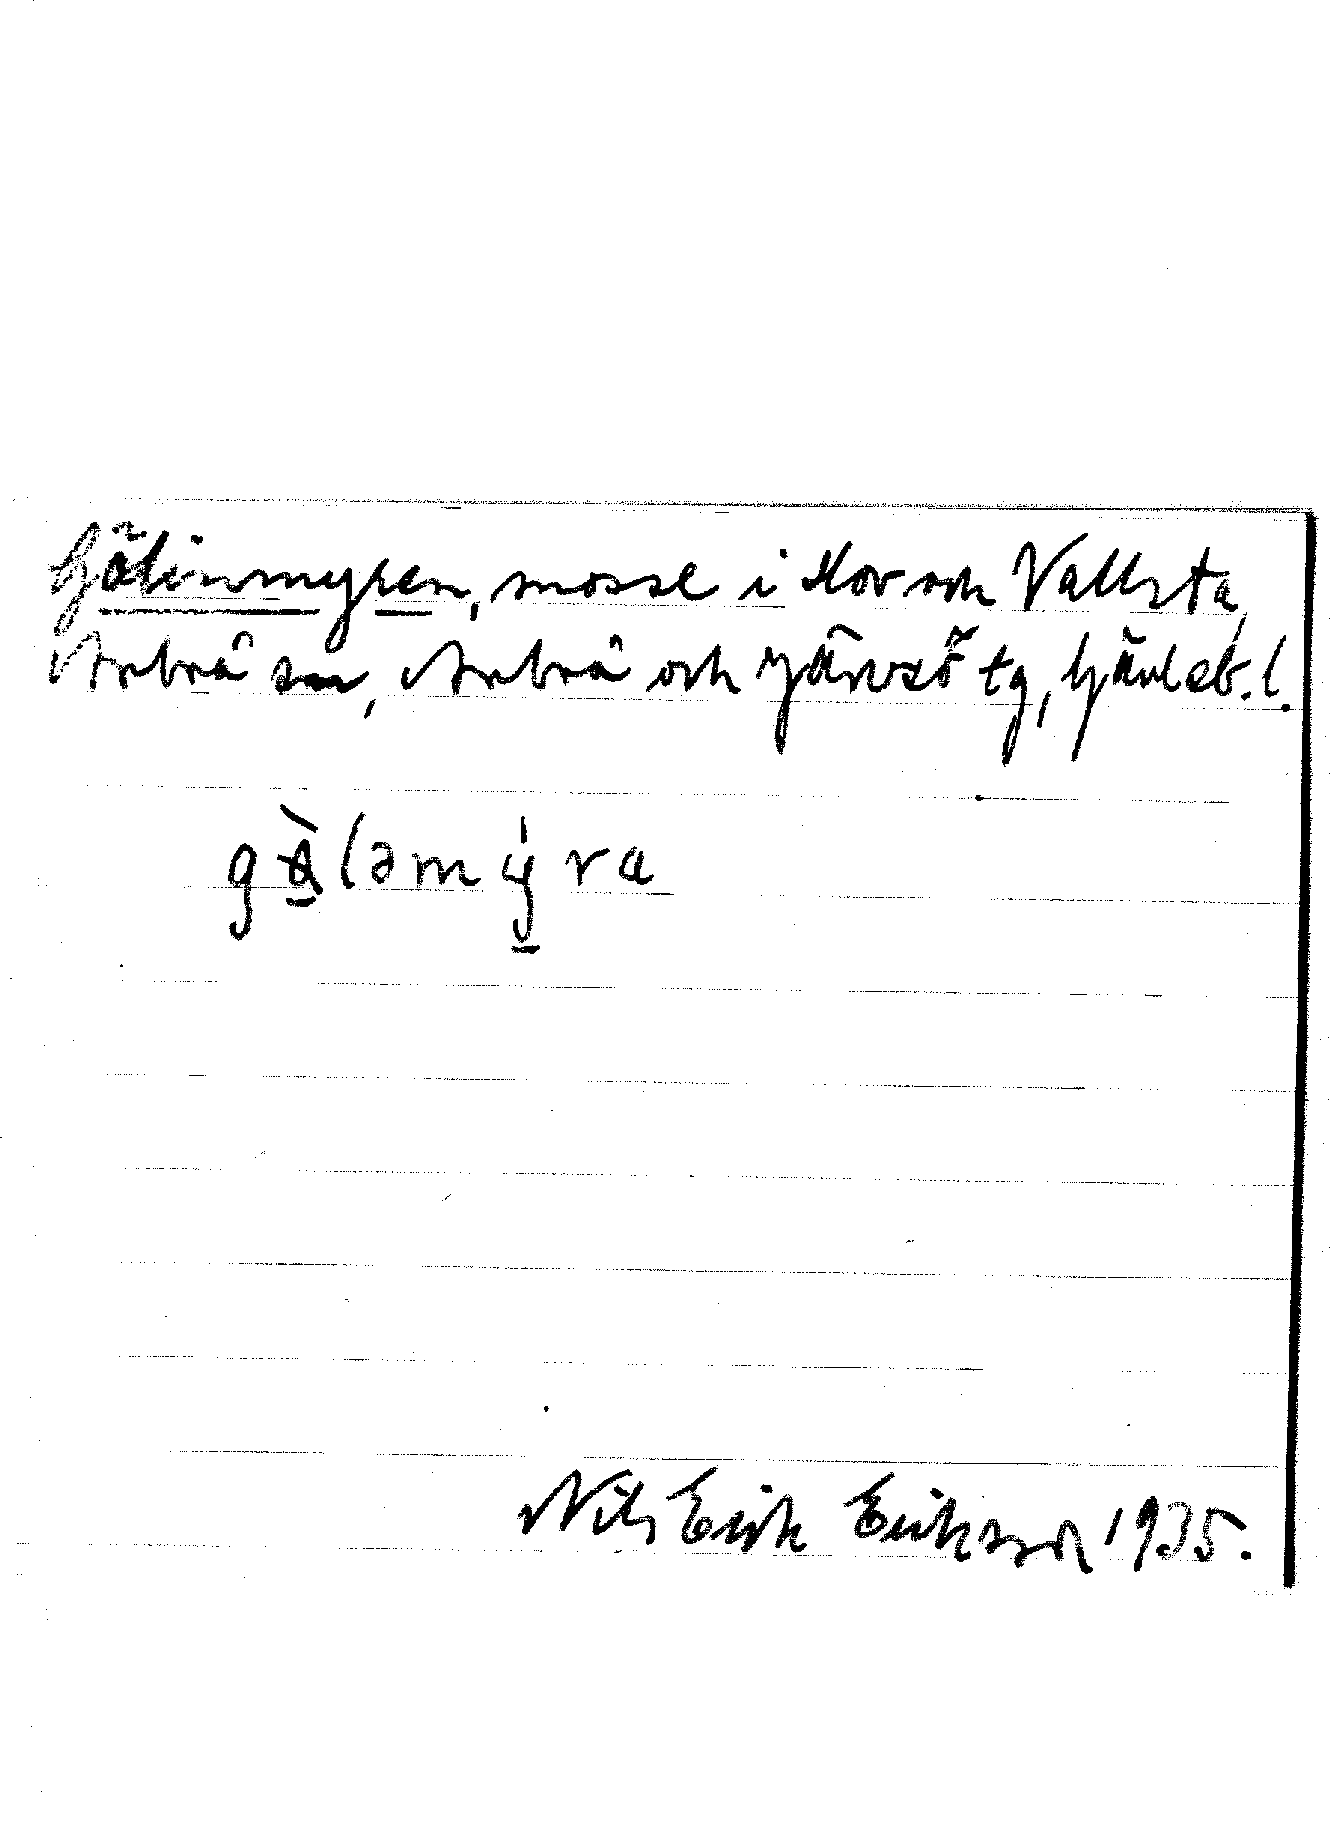 Gölinmyren, mosse i Hov och Vallsta,
Arbrå sn, Arbrå och Järvsö tg, Gävleb. l.
göləmýra
Nils Erik Eriksson 1935.